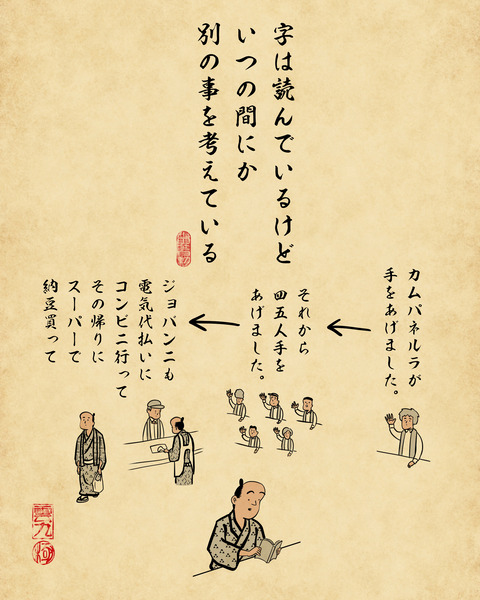 字は読んでいるけど
いつの間にか
別の事を考えている
カムパネルラが
手をあげました。
それから
四五人手を
あげました。
ジョバンニも
電気代払いに
コンビニ行って
その帰りに
スーパーで
納豆買って